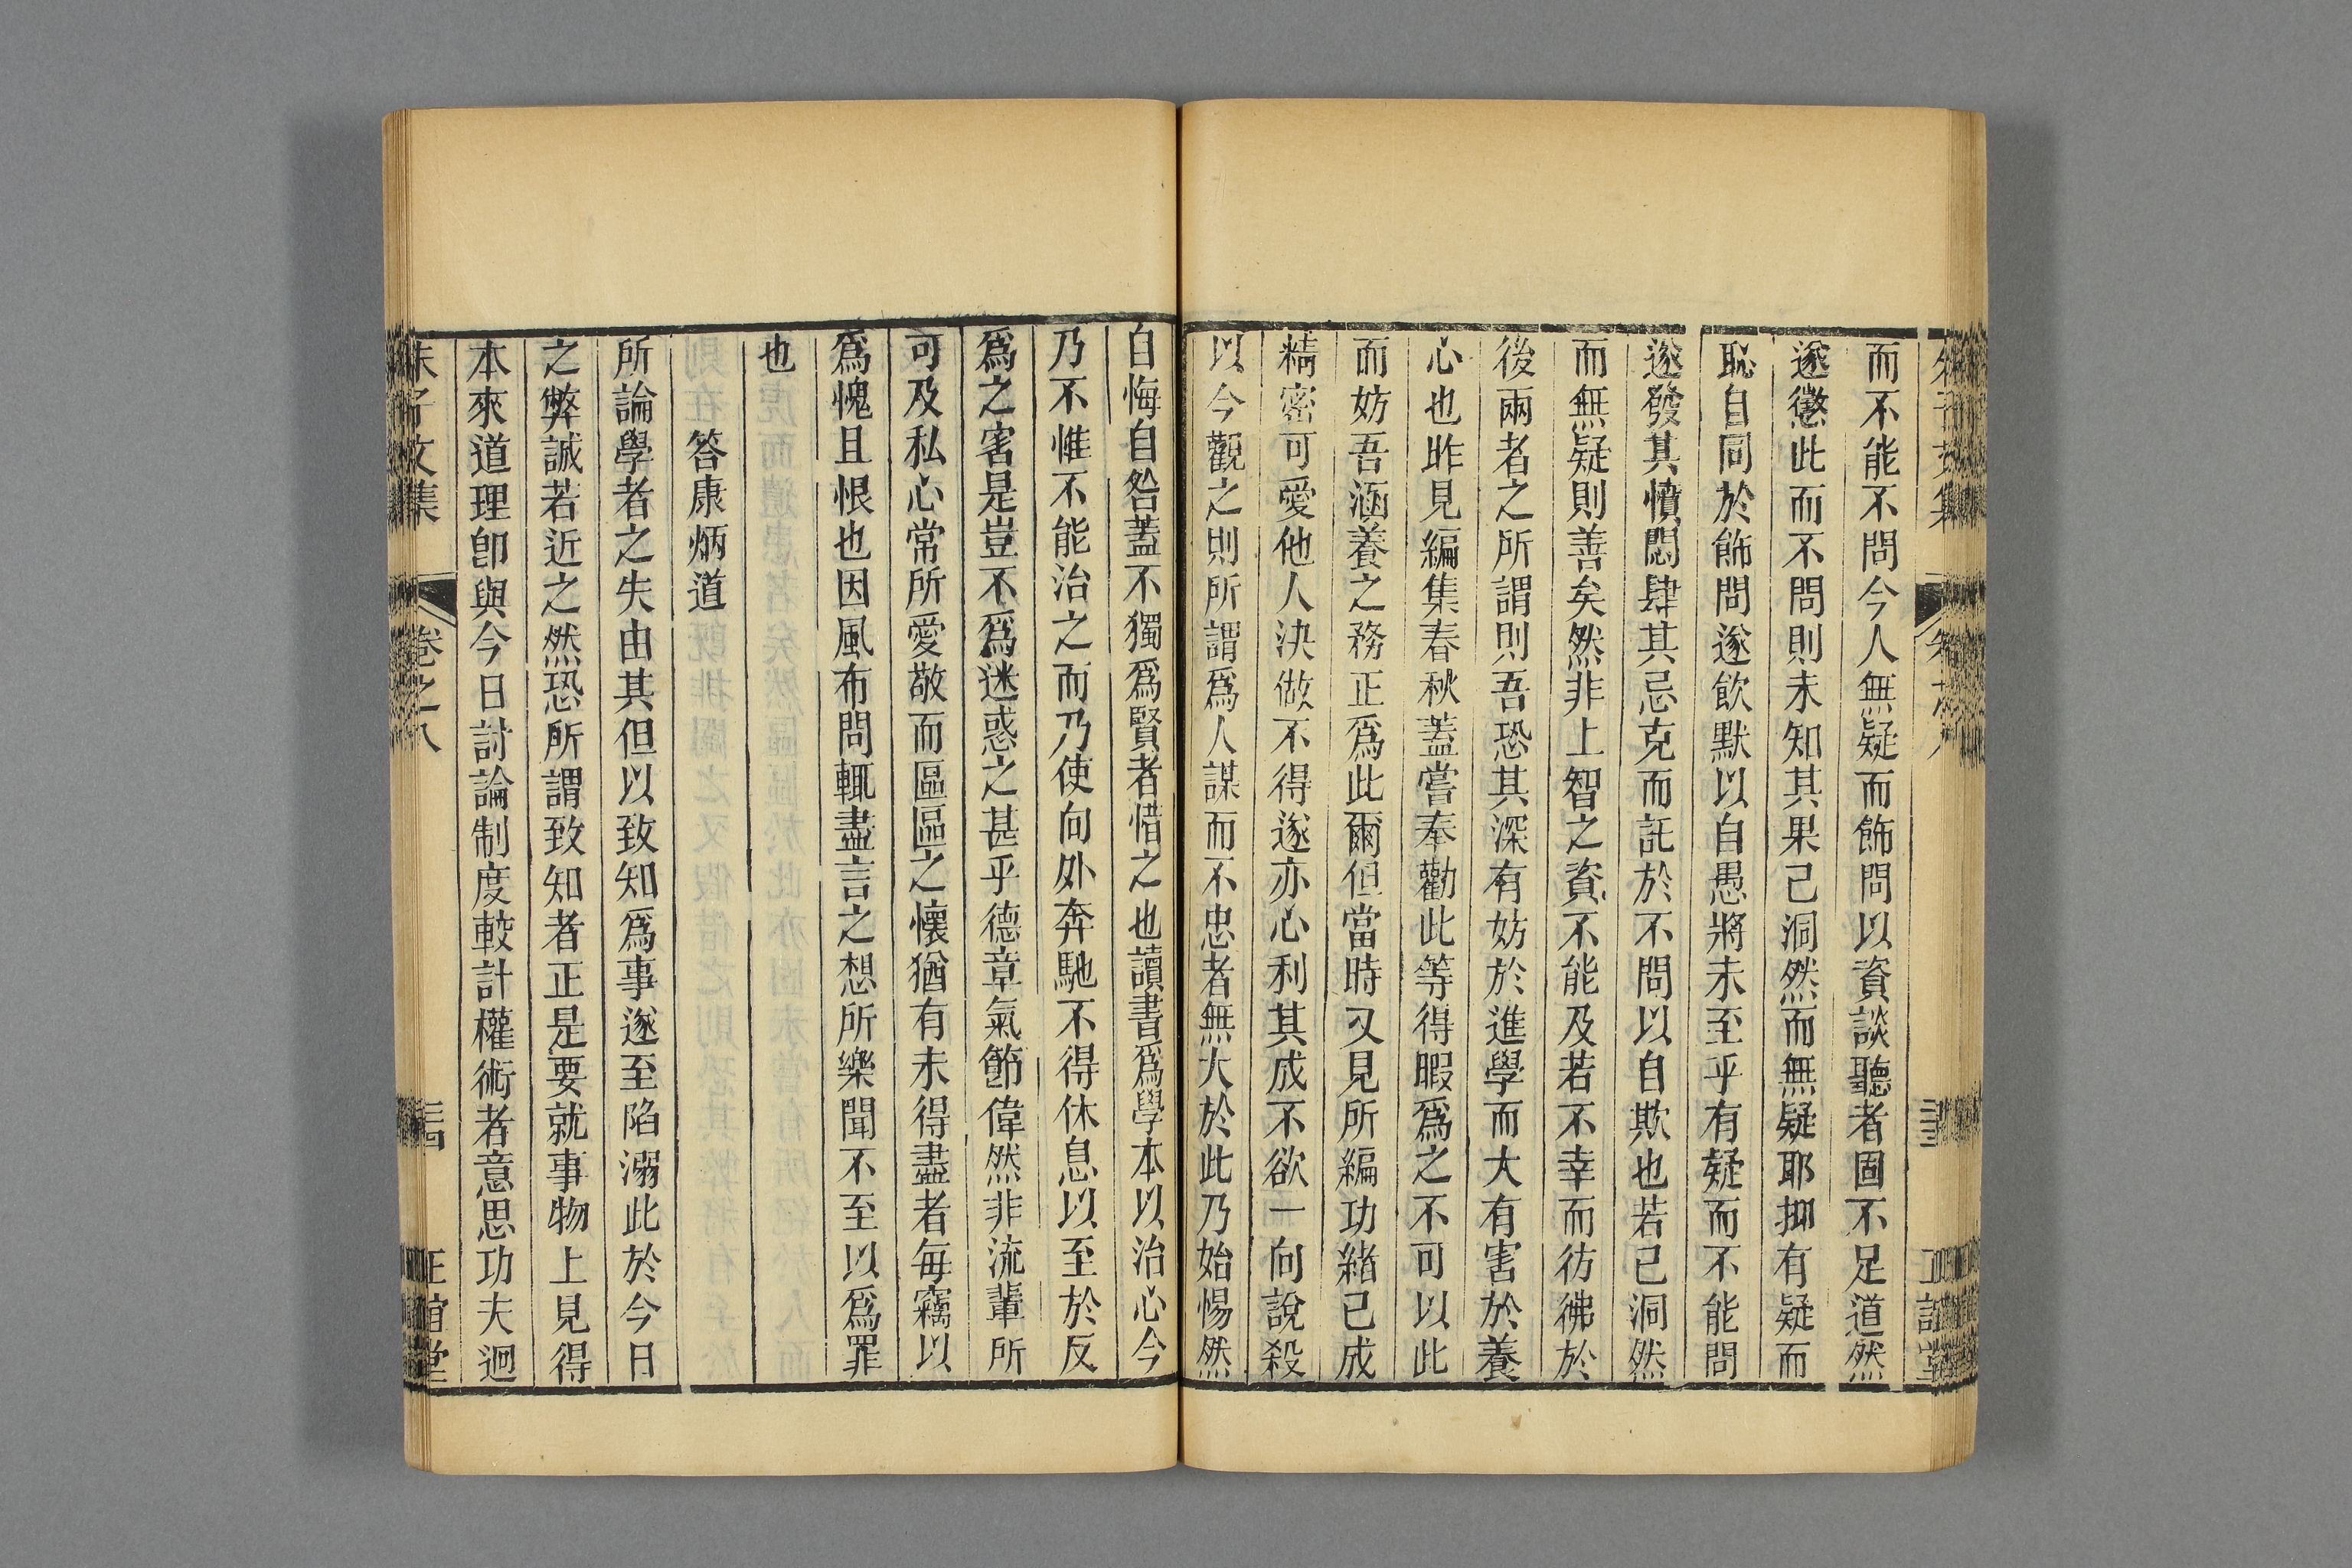 而不能不問今人無疑而飾問以資談聽者固不足道然
遂懲此而不問則未知其果己洞然而無疑耶抑有疑而
恥自同於飾問遂飲默以自愚將未至乎有疑而不能問
遂發其憤悶肆其忌克而託於不問以自欺也若已洞然
而無疑則善矣然非上智之資不能及若不幸而彷彿於
後兩者之所謂則吾恐其深有妨於進學而大有害於養
心也昨見編集春秋蓋嘗奉勸此等得暇爲之不可以此
而妨吾涵養之務正爲此爾但當時又見所編功緒已成
精密可愛他人決做不得遂亦心利其成不欲一向說殺
以今觀之則所謂爲人謀而不忠者無大於此乃始惕然
自悔自咎蓋不獨爲賢者惜之也讀書爲學本以治心今
乃不惟不能治之而乃使向外奔馳不得休息以至於反
爲之害是豈不爲迷惑之甚乎德章氣節偉然非流輩所
可及私心常所愛敬而區區之懷猶有未得盡者每竊以
爲愧且恨也因風布問輒盡言之想所樂聞不至以爲罪
也
答康炳道
所論學者之失由其但以致知爲事遂至陷溺此於今日
之弊誠若近之然恐所謂致知者正是要就事物上見得
本來道理卽與今日討論制度較計權術者意思功夫迥
朱子文集
卷之八
正誼堂